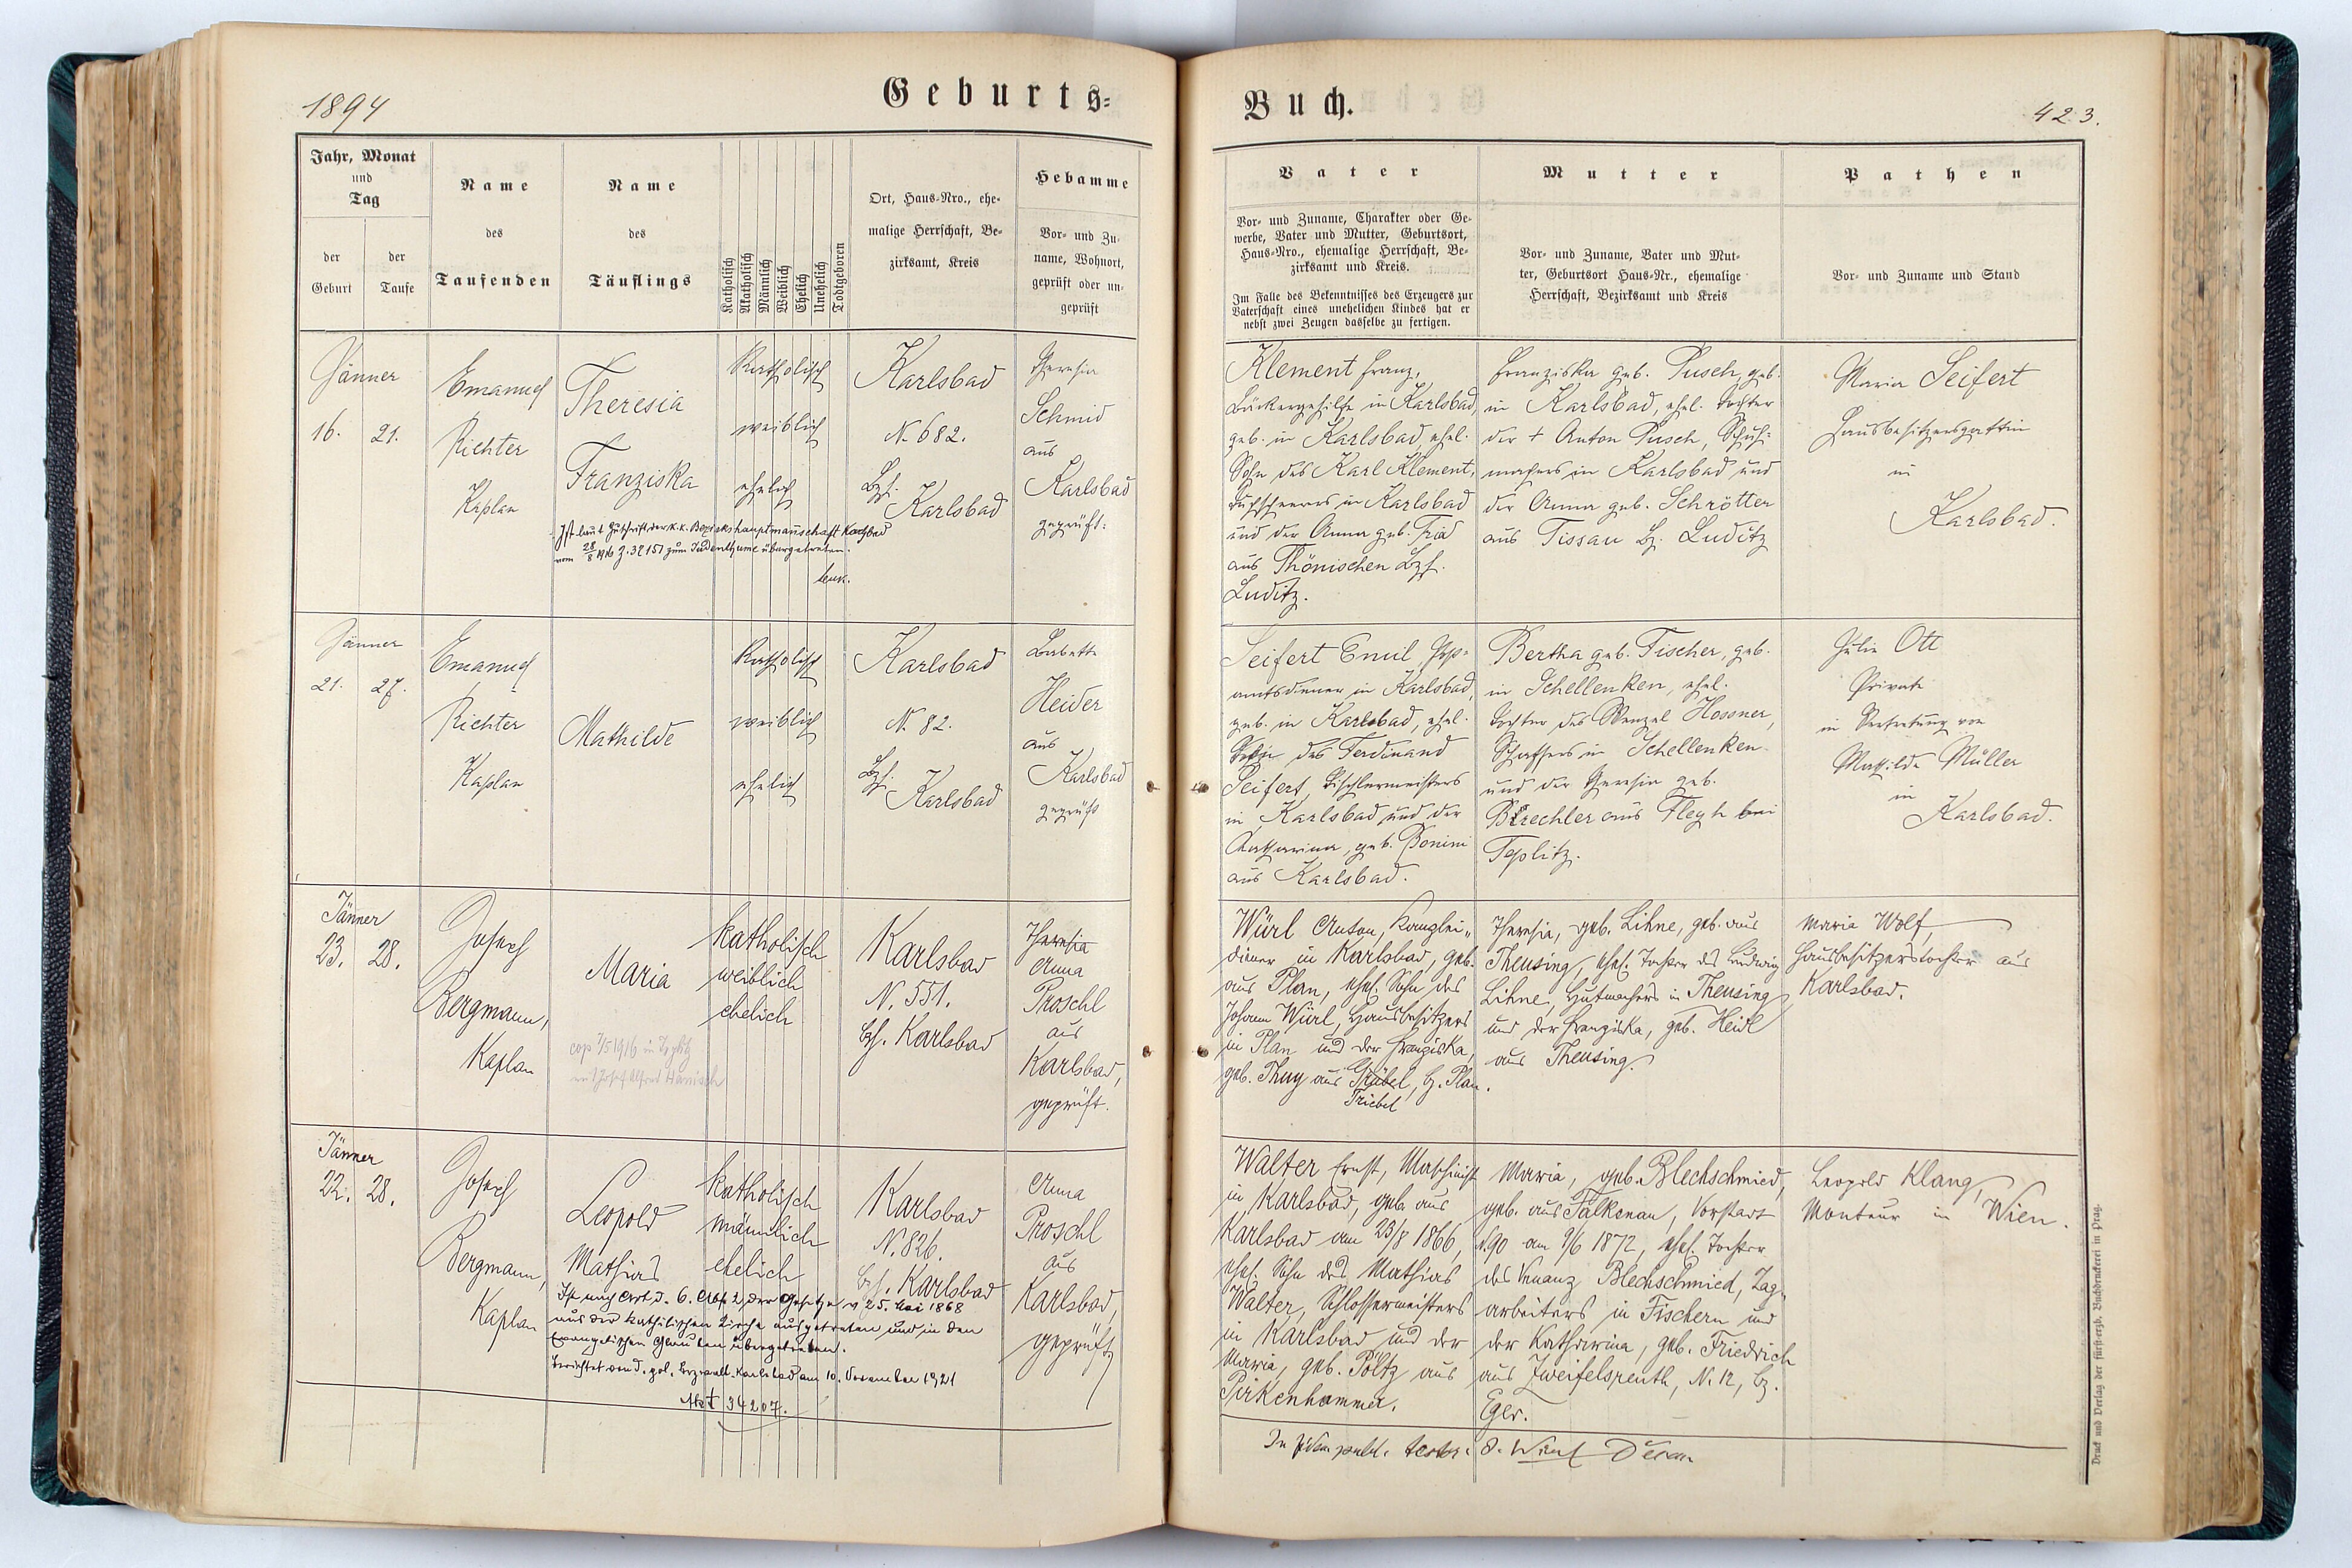 1894
Geburts=
Jahr, Monat
und
Tag
der
Geburt
der
Taufe
Name
des
Taufenden
Name
des
Täuflings
Katholisch
Akatholisch
Männlich
Weiblich
Ehelich
Unehelich
Todtgeboren
Ort, Haus-Nro., ehe-
malige Herrschaft, Be-
zirksamt, Kreis
Hebamme
Vor- und Zu-
name, Wohnort,
geprüft oder un-
geprüft
Jänner
16. 21.
Emanuel
Richter
Kaplan
Theresia
Franziska
Katholisch
weiblich
ehelich
Karlsbad
N. 682.
Bzh.
Karlsbad
Theresia
Schmid
aus
Karlsbad
geprüft.
Ist laut Zuschrift der k.k. Bezirkshauptmannschaft Karlsbad
vom 28/8 1916 Z. 32151 zum Judenthume übergetreten.
Jänner
21. 27.
Emanuel
Richter
Kaplan
Mathilde
Katholisch
weiblich
ehelich
Karlsbad
N. 82.
Bzh.
Karlsbad
Babette
Heider
aus
Karlsbad
geprüft
Jänner
23. 28.
Josef
Bergmann,
Kaplan
Maria
cop 7/5 1916 in Teplitz
mit Josef Alfred Hanisch
katholisch
weiblich
ehelich
Karlsbad
N. 551.
Bh. Karlsbad
Theresia
Anna
Proschl
aus
Karlsbad,
geprüft.
Jänner
22. 28.
Josef
Bergmann,
Kaplan
Leopold
Mathias
katholisch
männlich
ehelich
Karlsbad
N. 826.
Bzh. Karlsbad
Anna
Proschl
aus
Karlsbad,
geprüft
Ist nach Art. d. 6. Abs 2, der Gesetze v 25. Mai 1868
aus der katholischen Kirche ausgetreten und in den
Evangelischen Glauben übergetreten.
Berichtet von d. pol. Bezverwalt. Karlsbad am 10. November 1921
Akt 34207.
Buch.
423.
Vater
Vor- und Zuname, Charakter oder Ge-
werbe, Vater und Mutter, Geburtsort,
Haus-Nro., ehemalige Herrschaft, Be-
zirksamt und Kreis.
Im Falle des Bekenntnisses des Erzeugers zur
Vaterschaft eines unehelichen Kindes hat er
nebst zwei Zeugen dasselbe zu fertigen.
Mutter
Vor- und Zuname, Vater und Mut-
ter, Geburtsort Haus-Nr., ehemalige
Herrschaft, Bezirksamt und Kreis
Pathen
Vor- und Zuname und Stand
Klement Franz,
Bäckergehilfe in Karlsbad,
geb. in Karlsbad, ehel.
Sohn des Karl Klement,
Tuchscherers in Karlsbad
und der Anna geb. Frid
aus Thönischen Bzh.
Luditz.
Franziska geb. Pusch, geb.
in Karlsbad, ehel. Tochter
der + Anton Pusch, Schuh-
machers in Karlsbad und
der Anna geb. Schrötter
aus Tissau Bz. Luditz
Maria Seifert
Hausbesitzersgattin
in
Karlsbad.
Seifert Emil, Post-
amtsdiener in Karlsbad,
geb. in Karlsbad, ehel.
Sohn des Ferdinand
Seifert, Tischlermeisters
in Karlsbad und der
Katharina, geb. Bonini
aus Karlsbad.
Bertha geb. Fischer, geb.
in Schellenken, ehel.
Tochter des Wenzel Hossner,
Schaffers in Schellenken
und der Theresia geb.
Brechler aus Flegh bei
Teplitz.
Julie Ott
Private
in Vertretung von
Mathilde Müller
in
Karlsbad.
Würl Anton, Kanzlei-
diener in Karlsbad, geb.
aus Plan, ehel. Sohn des
Johann Würl, Hausbesitzers
in Plan und der Franziska,
geb. Thuy aus Trübel, Bz. Plan.
Triebel
Theresia, geb. Lihne, geb. aus
Theusing, ehel. Tochter des Ludwig
Lihne, Hutmachers in Theusing
und der Franziska, geb. Heidl
aus Theusing.
Maria Wolf,
Hausbesitzerstochter aus
Karlsbad.
Walter Ernst, Maschinist
in Karlsbad, geb. aus
Karlsbad am 23/8 1866,
ehel. Sohn des Mathias
Walter, Schlossermeisters
in Karlsbad und der
Maria, geb. Pöltz aus
Pirkenhammer.
Maria, geb. Blechschmied,
geb. aus Falkenau, Vorstadt
N. 90 am 9/6 1872, ehel. Tochter
des Venanz Blechschmied, Tag-
arbeiters in Fischern und
der Katharina, geb. Friedrich
aus Zweifelsreuth, N. 12, Bz.
Eger.
Leopold Klang,
Monteur in Wien.
In fidem publ. testor:
Druck und Verlag der fürst-erzb. Buchdruckerei in Prag.